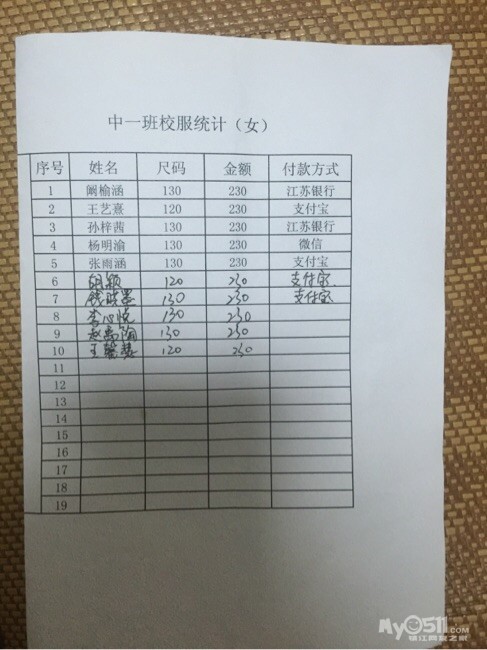 中一班校服统计（女）
序号 姓名 尺码 金额 付款方式
1 阚榆涵 130 230 江苏银行
2 王艺熹 120 230 支付宝
3 孙梓茜 130 230 江苏银行
4 杨明渝 130 230 微信
5 张雨涵 130 230 支付宝
6 颖 120 230 支付宝
7 钱 130 230 支付宝
8 李心悦 130 230
9 赵禹陶 130 230
10 王 120 230
11
12
13
14
15
16
17
18
19
My0511.com
镇江网友之家